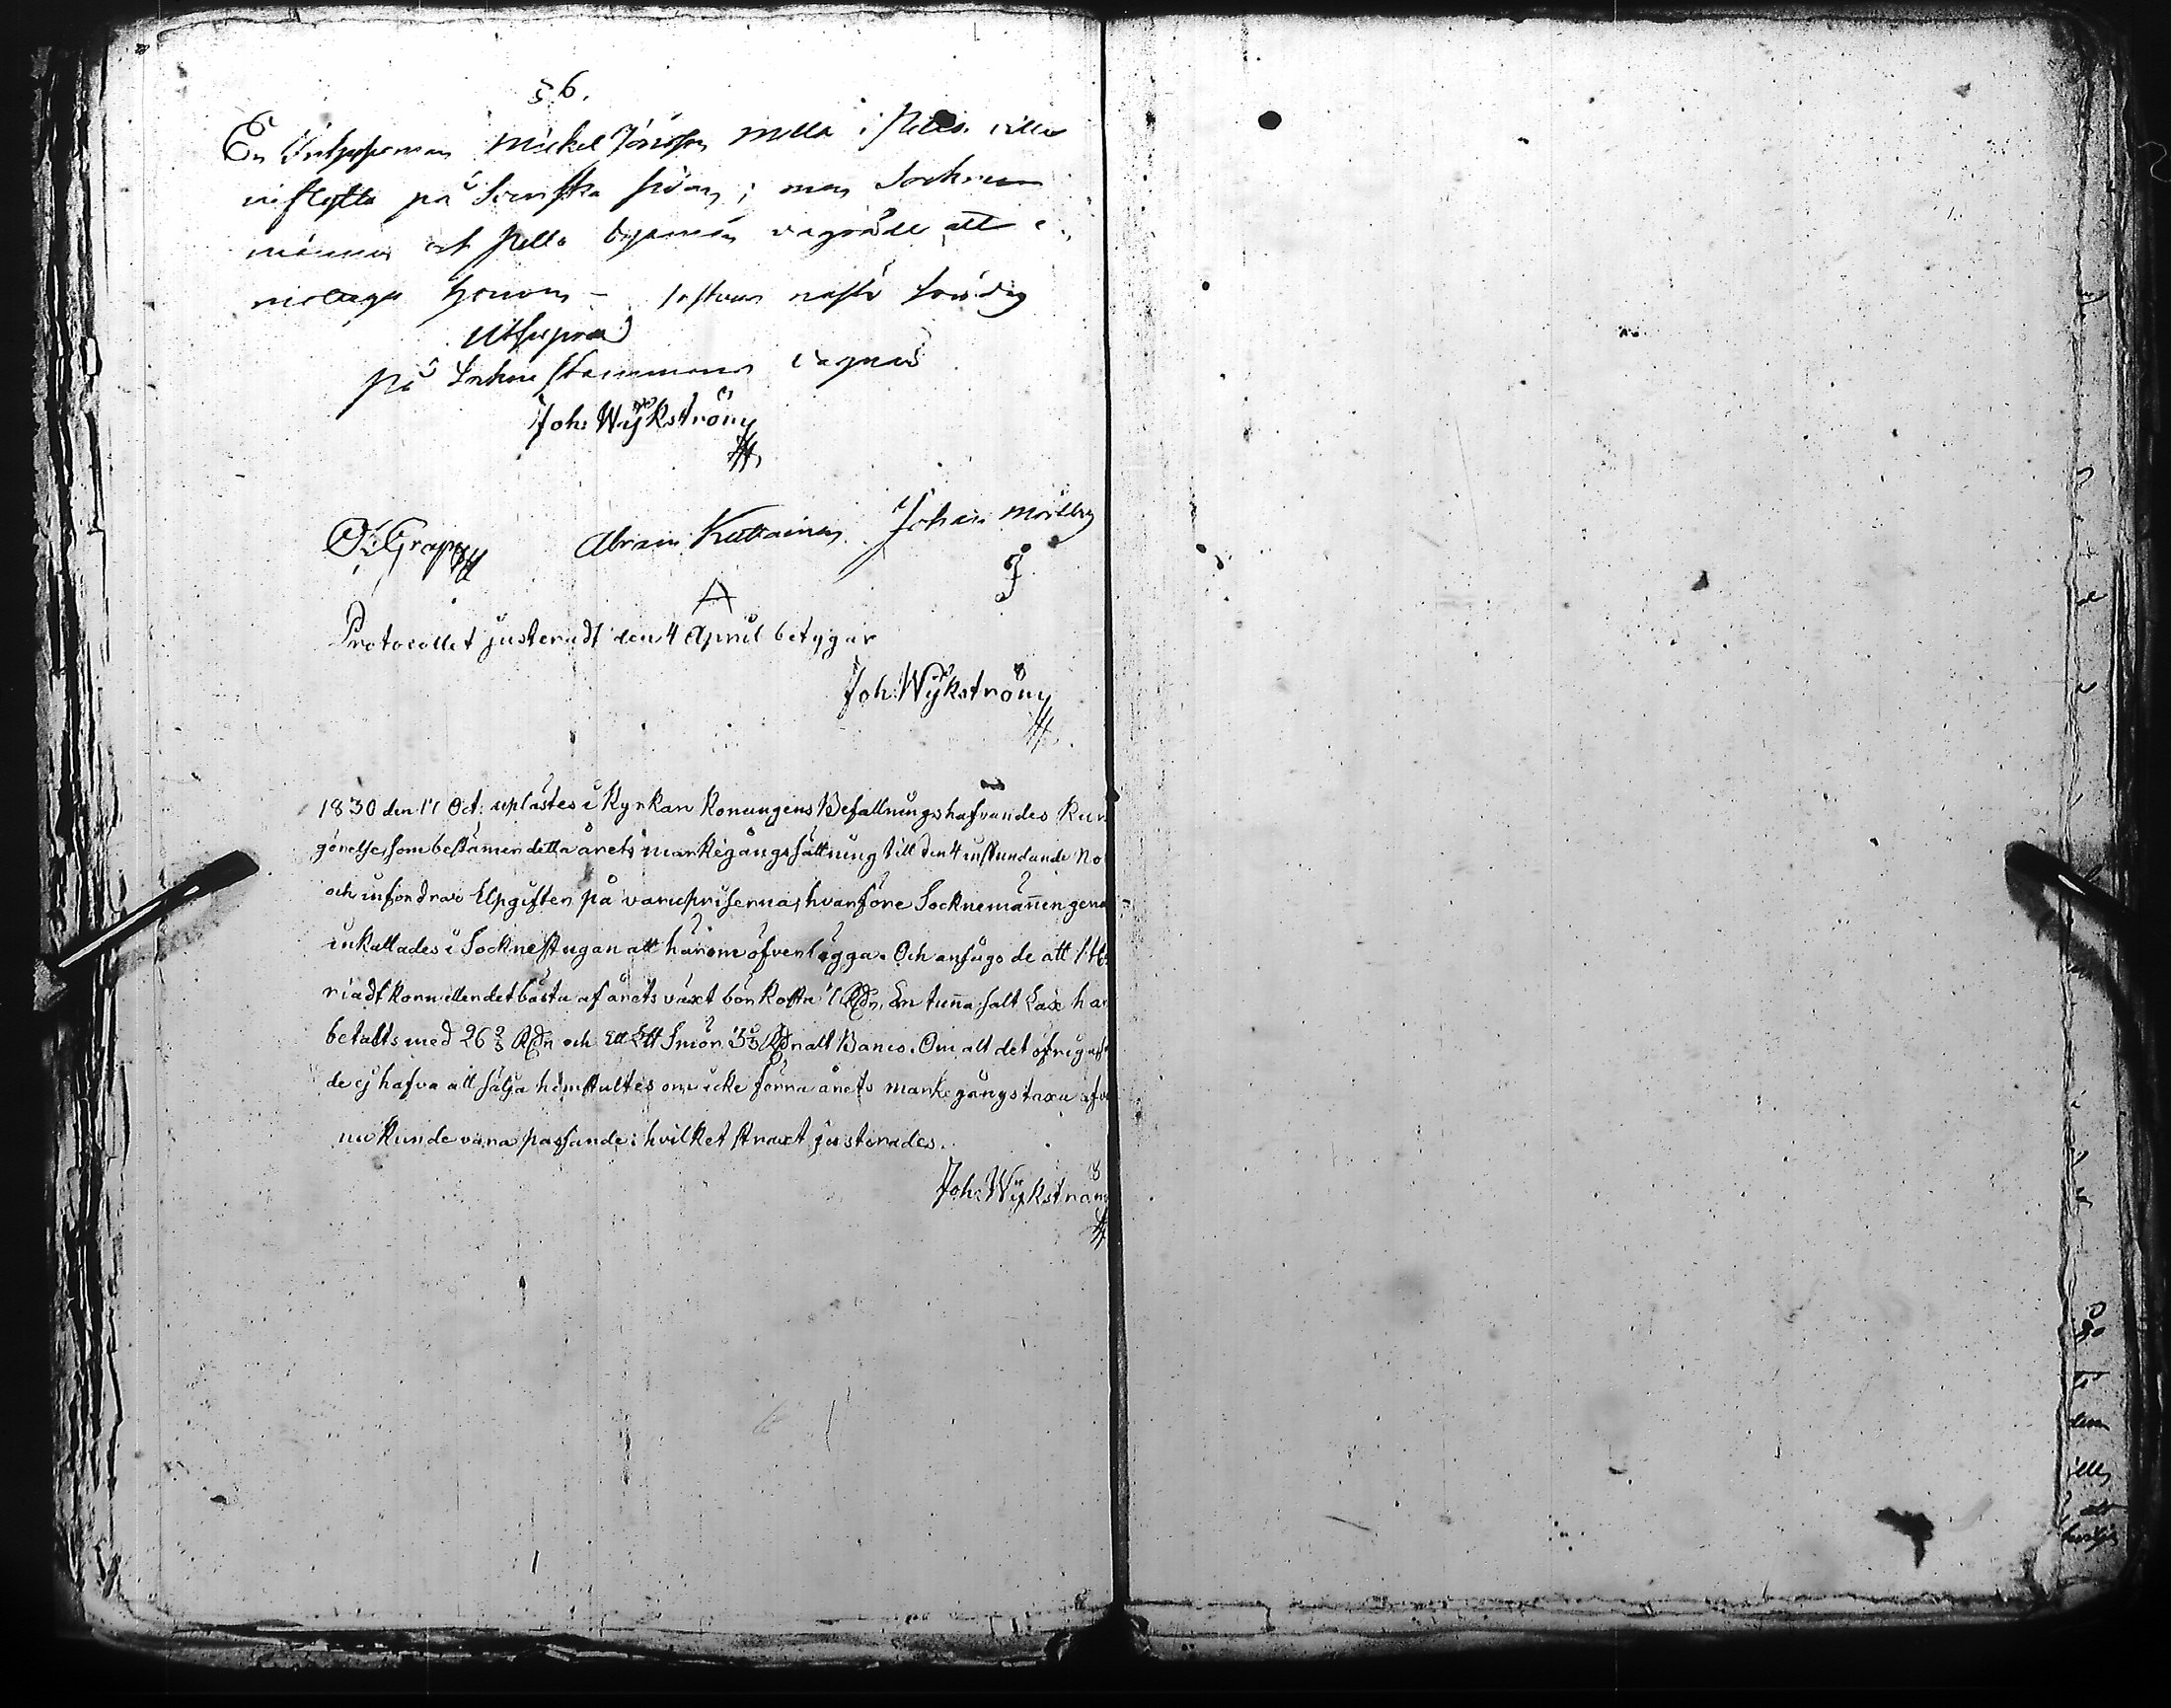 § 6.
En Inhyseman Mickel Jönsson Mella i Pello ville
inflytta på Svenska sidan; men Sockne
männer och Pello byamän vägrade att
mottaga honom –
Utsupra
På Sockne stämmans vägnar
Joh: Wijkström
O: Grape Abram Kuttainen Johan
A
Protocollet justeradt den 4 April betygar
Joh: Wijkström
1830 den 17 Oct: uplästes i Kyrkan Konungens Befallningshafvandes Kun
görelse, som bestämmer detta årets markegångssättning till den 4 instundande No
och infordrar Upgifter på varuprisserna, hvarföre Socknemännen gena
inkallades i Socknestugan att härom öfverlägga. Och ansågo de att 1
riadt korn eller det bästa af årets växt bör kosta Rdr. En tunna salt Lax har
betalts med 26 2/3 Rdr och Ett L℔ Smör 3 1/3 Rdr allt Banco. Om alt det öfriga
de ej hafva att sälja hemstultes om icke förra årets markegångstaxa
nu kunde vara passande: hvilket straxt justerades.
Joh: Wijkström